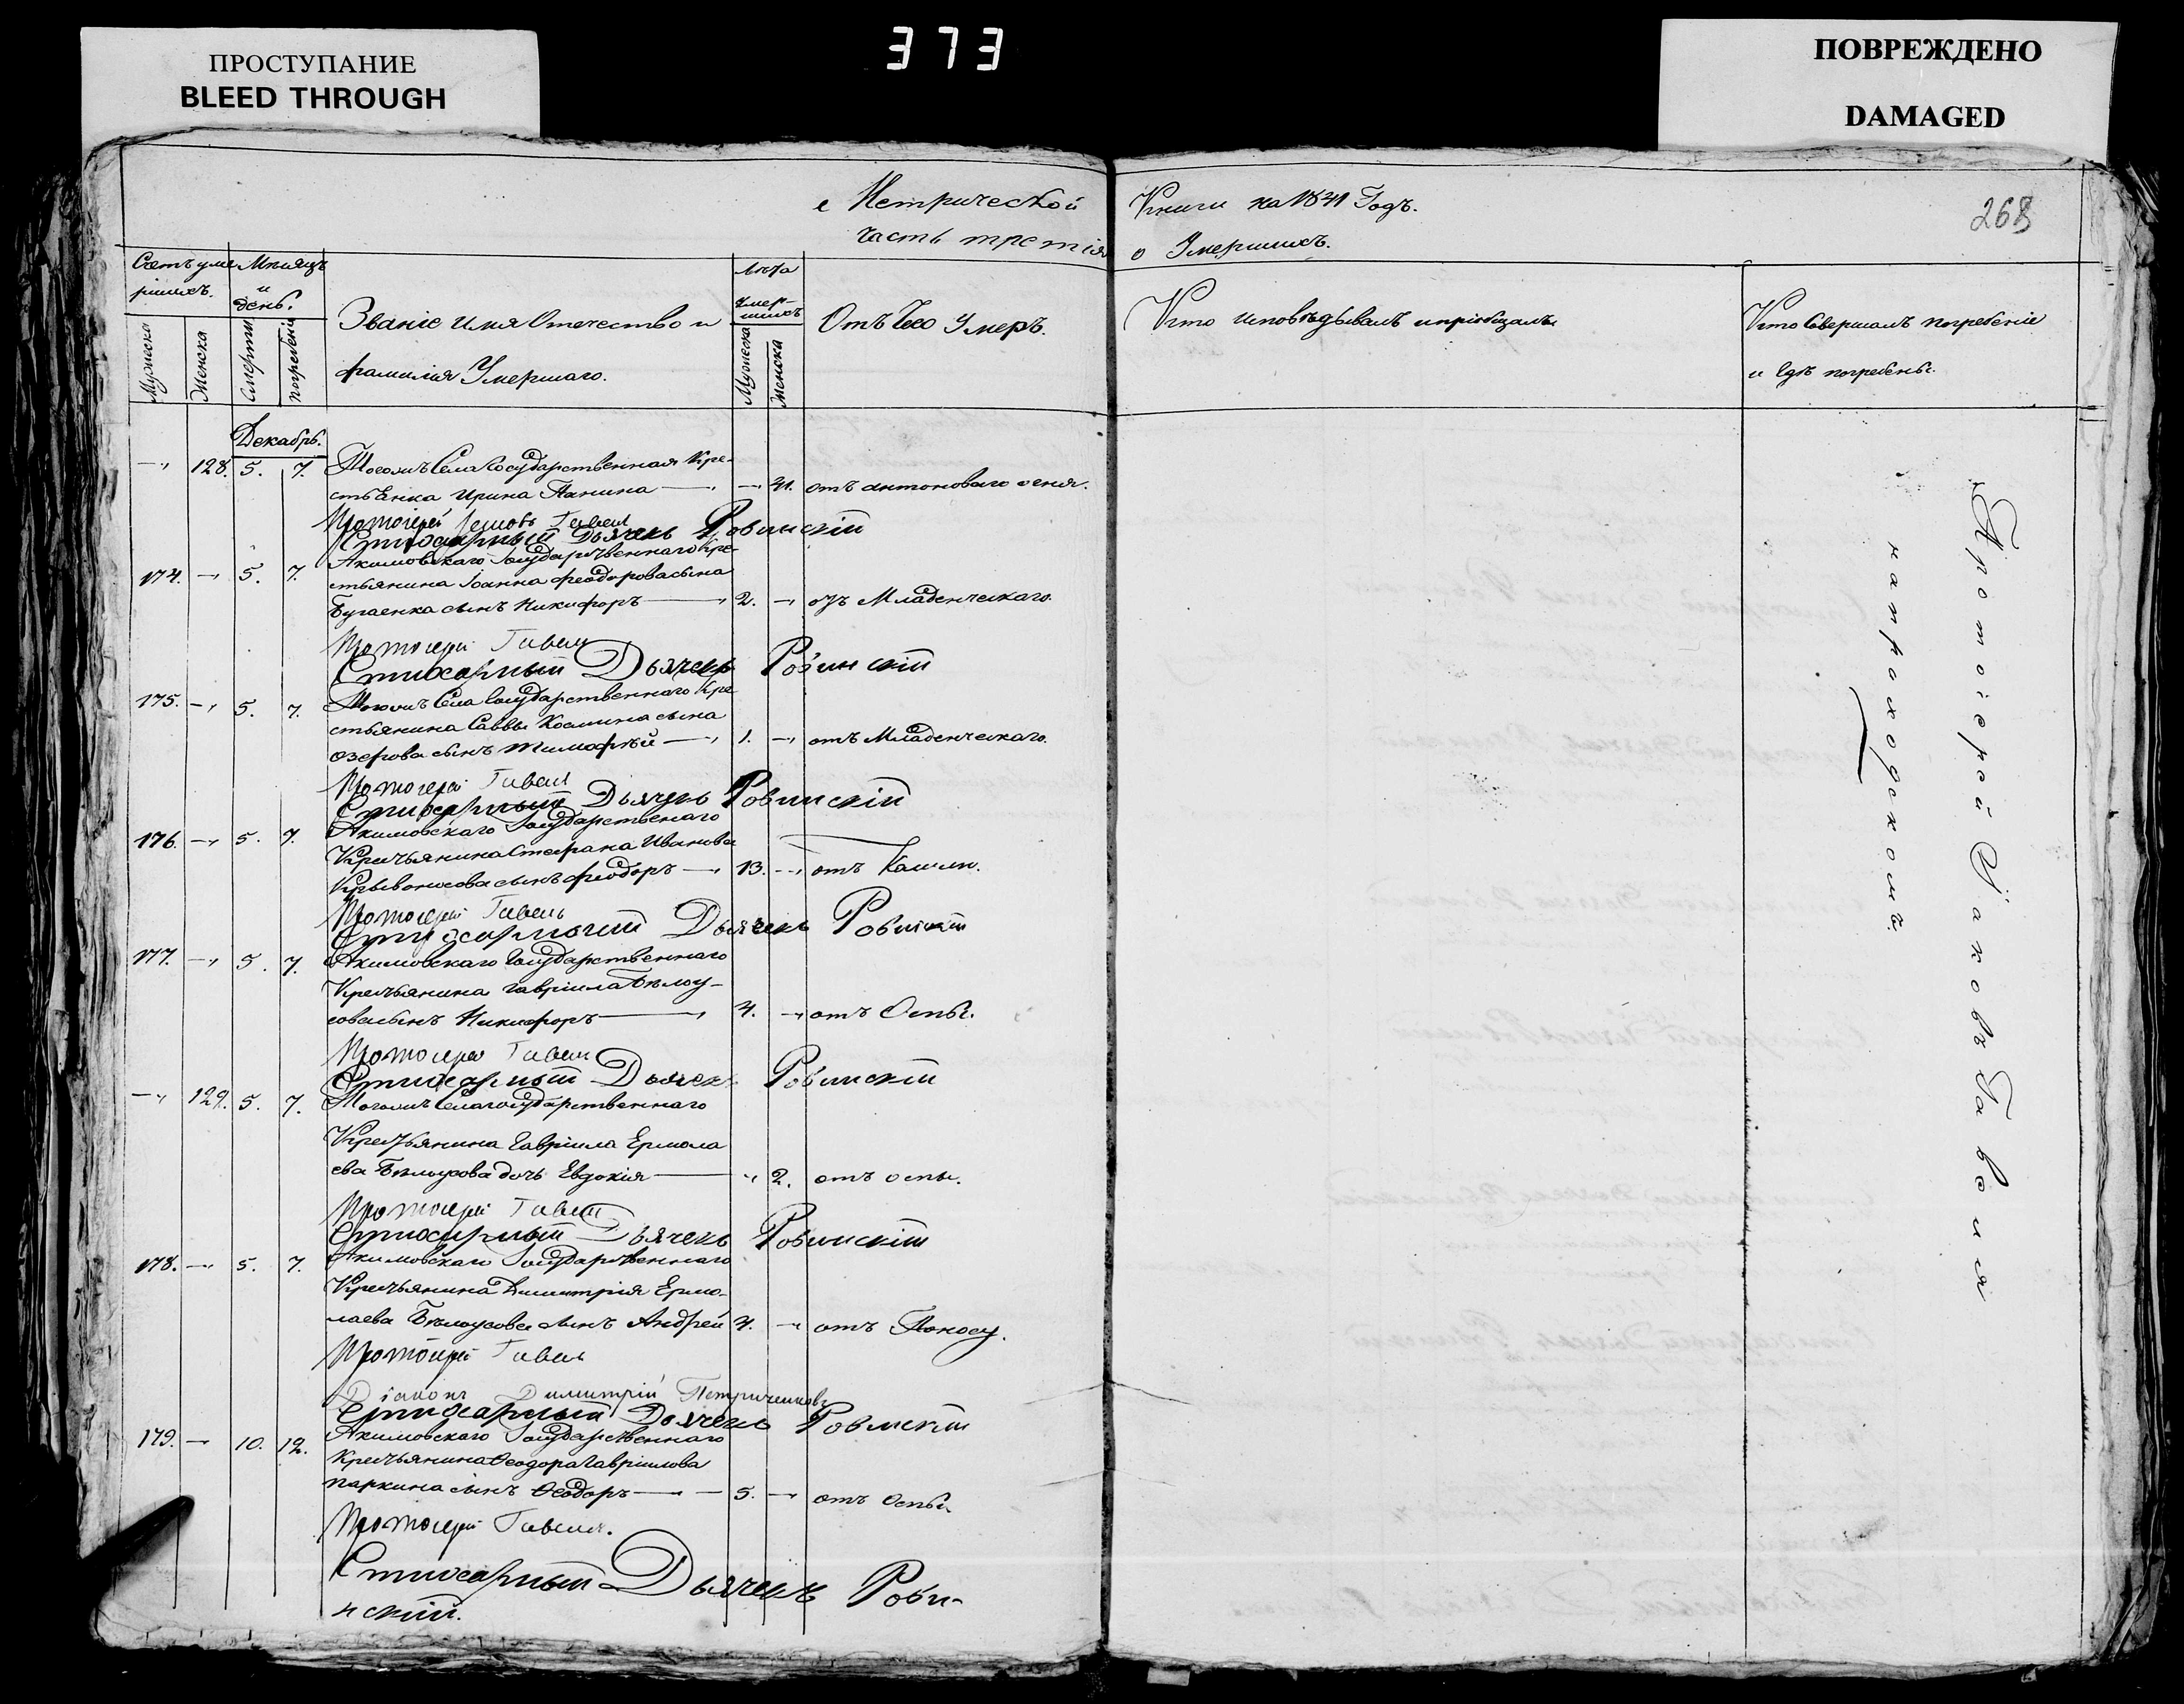 ПРОСТУПАНИЕ
BLEED THROUGH
373
ПОВРЕЖДЕНО
DAMAGED
Метрической Книги на 1841 Годъ.
268
часть третія о Умершихъ.
Счетъ уме
ршихъ.
Мѣсяцъ
и
день.
Мужеска
Женска
Смерти
погребенія
Званіе имя Отечество и
фамилія Умершаго.
лѣта
умер-
шихъ
Мужеска
Женска
Отъ чего умеръ.
Кто исповѣдывалъ и пріобщалъ
Кто Совершалъ погребеніе
и гдѣ погребены.
Декабрь.
128. 5. 7. Тогожъ Села Государственная Кре-
стьянка Ирина Панина отъ антоноваго огня.
Протоіерей Іаковъ Гавеля
Стихарный Дьячекъ Ровинскій
174. 5. 7. Акимовскаго Государственнаго Кре-
стьянина Іоанна Феодорова сына
Бугаенка сынъ Никифоръ 2. отъ Младенческаго.
Протоіерей Гавеля
Стихарный Дьячекъ Ровинскій
175. 5. 7. Тогожъ Села Государственнаго Кре
стьянина Саввы Космина сына
Озерова сынъ Тимофѣй 1. отъ Младенческаго.
Протоіерей Гавеля
Стихарный Дьячекъ Ровинскій
176. 5. 7. Акимовскаго Государственаго
Крестьянина Стефана Иванова
Кривоносова сынъ Феодоръ 13. отъ Кашли.
Протоіерей Гавеля
Стихарный Дьячекъ Ровинскій
177. 5. 7. Акимовскаго Государственнаго
Крестьянина Гавріила Бѣлоу-
сова сынъ Никифоръ 4. отъ Оспы.
Протоіерей Гавеля
Стихарный Дьячекъ Ровинскій
129. 5. 7. Тогожъ Села Государственнаго
Крестьянина Гавріила Ермола
ева Бѣлоусова дочь Евдокія 2. отъ оспы.
Протоіерей Гавеля
Стихарный Дьячекъ Ровинскій
178. 5. 7. Акимовскаго Государственнаго
Крестьянина Димитрія Ермо-
лаева Бѣлоусова сынъ Андрей 4. отъ Поносу.
Протоіерей Гавеля
Діаконъ Димитрій Петриченковъ
Стихарный Дьячекъ Ровинскій
179. 10. 12. Акимовскаго Государственнаго
Крестьянина Ѳеодора Гавріилова
Паркина сынъ Ѳеодоръ 5. отъ Оспы
Протоіерей Гавеля.
Стихарный Дьячекъ Рови-
нскій.
Протоіерей Іаковъ Гавеля
на приходскомъ.